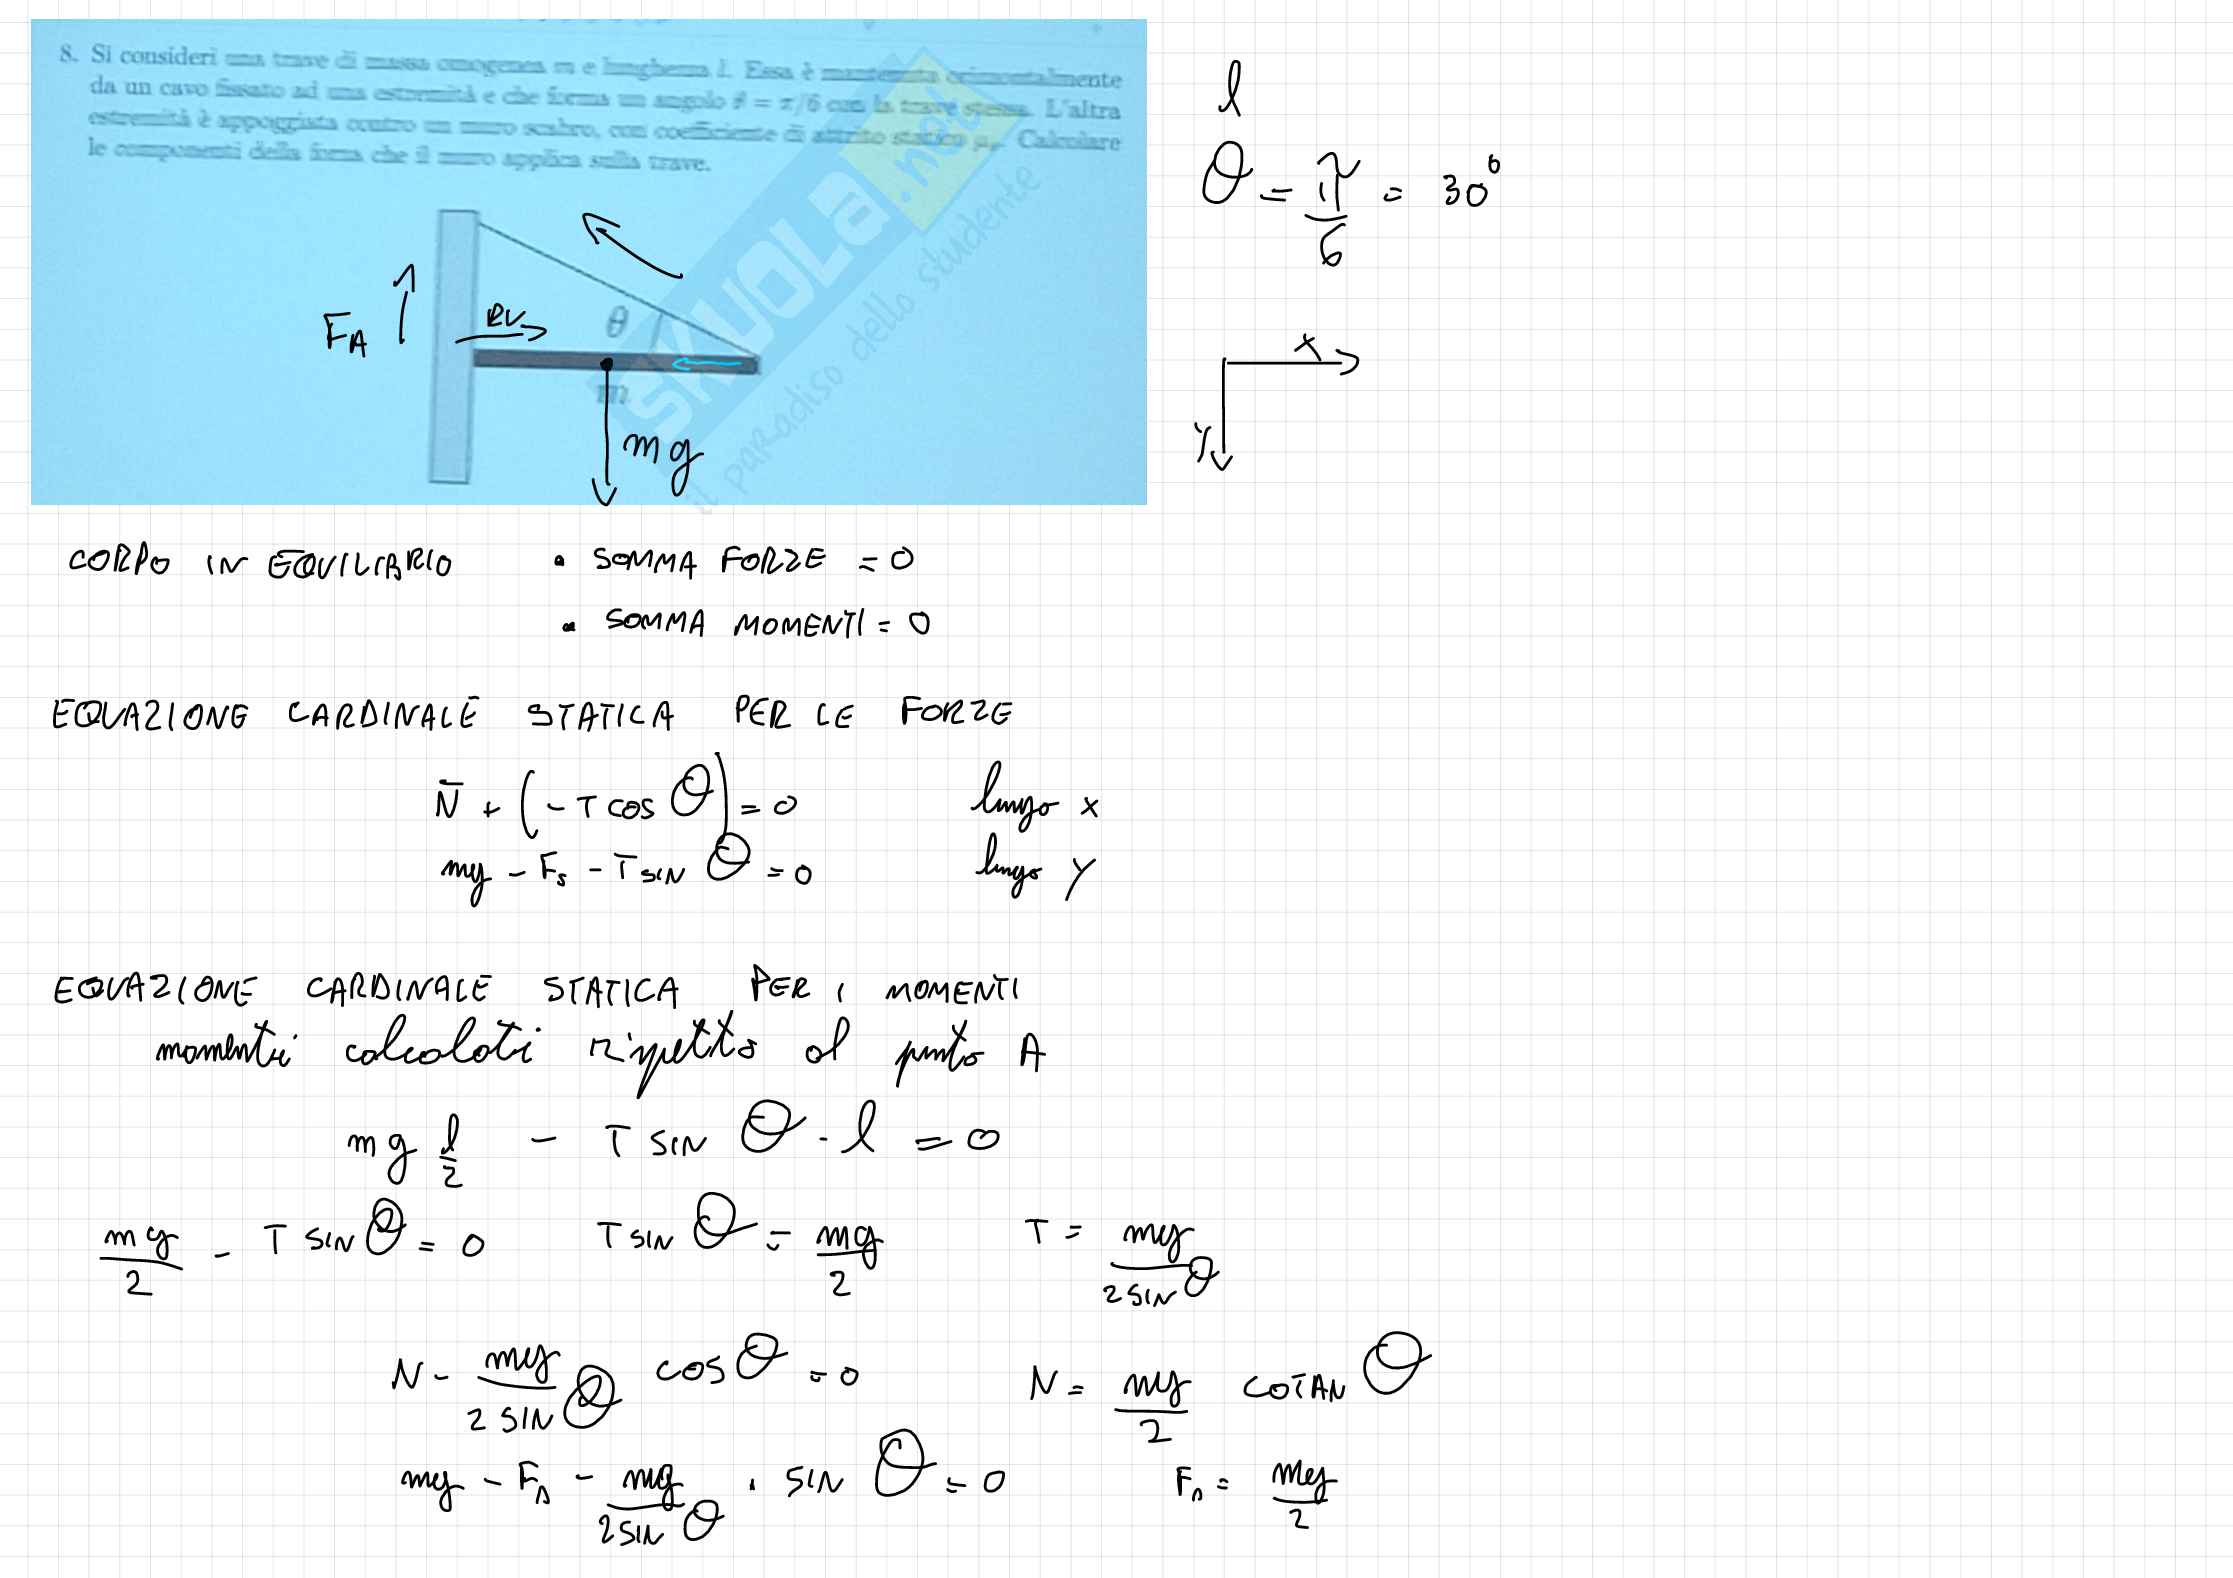 8. Si consideri una trave di massa omogenea m e lunghezza l. Essa è mantenuta orizzontalmente
da un cavo fissato ad una estremità e che forma un angolo θ = π/6 con la trave stessa. L'altra
estremità è appoggiata contro un muro scabro, con coefficiente di attrito statico μs. Calcolare
le componenti della forza che il muro applica sulla trave.
l
θ = π/6 = 30°
SKUOLA.net
il paradiso dello studente
FA
RV
θ
m
mg
X
Y
CORPO IN EQUILIBRIO • SOMMA FORZE = 0
• SOMMA MOMENTI = 0
EQUAZIONE CARDINALE STATICA PER LE FORZE
N + (- T cos θ) = 0 lungo x
mg - Fs - T SIN θ = 0 lungo y
EQUAZIONE CARDINALE STATICA PER I MOMENTI
momenti calcolati rispetto al punto A
mg l/2 - T SIN θ · l = 0
mg/2 - T SIN θ = 0 T SIN θ = mg/2 T = mg/2 SIN θ
N - mg/2 SIN θ cos θ = 0 N = mg/2 COTAN θ
mg - Fs - mg/2 SIN θ · SIN θ = 0 Fs = mg/2